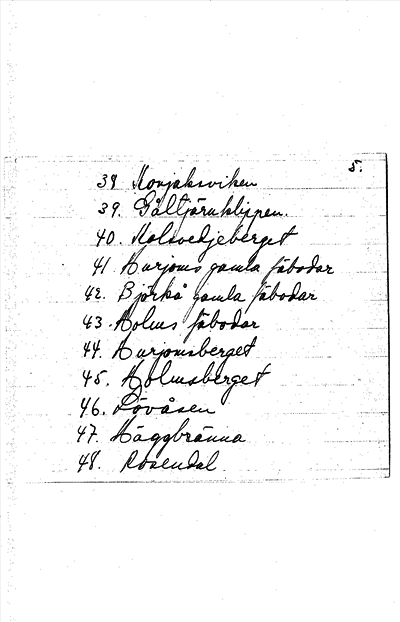 5.
38 Korjaksviken
39. Gåltjärnklippen.
40. Kolsvedjeberget
41 Hurjoms gamla fäbodar
42. Björkå gamla fäbodar
43. Holms fäbodar
44. Hurjomsberget
45. Holmsberget
46. Lövåsen
47. Häggbränna
48. Rosendal